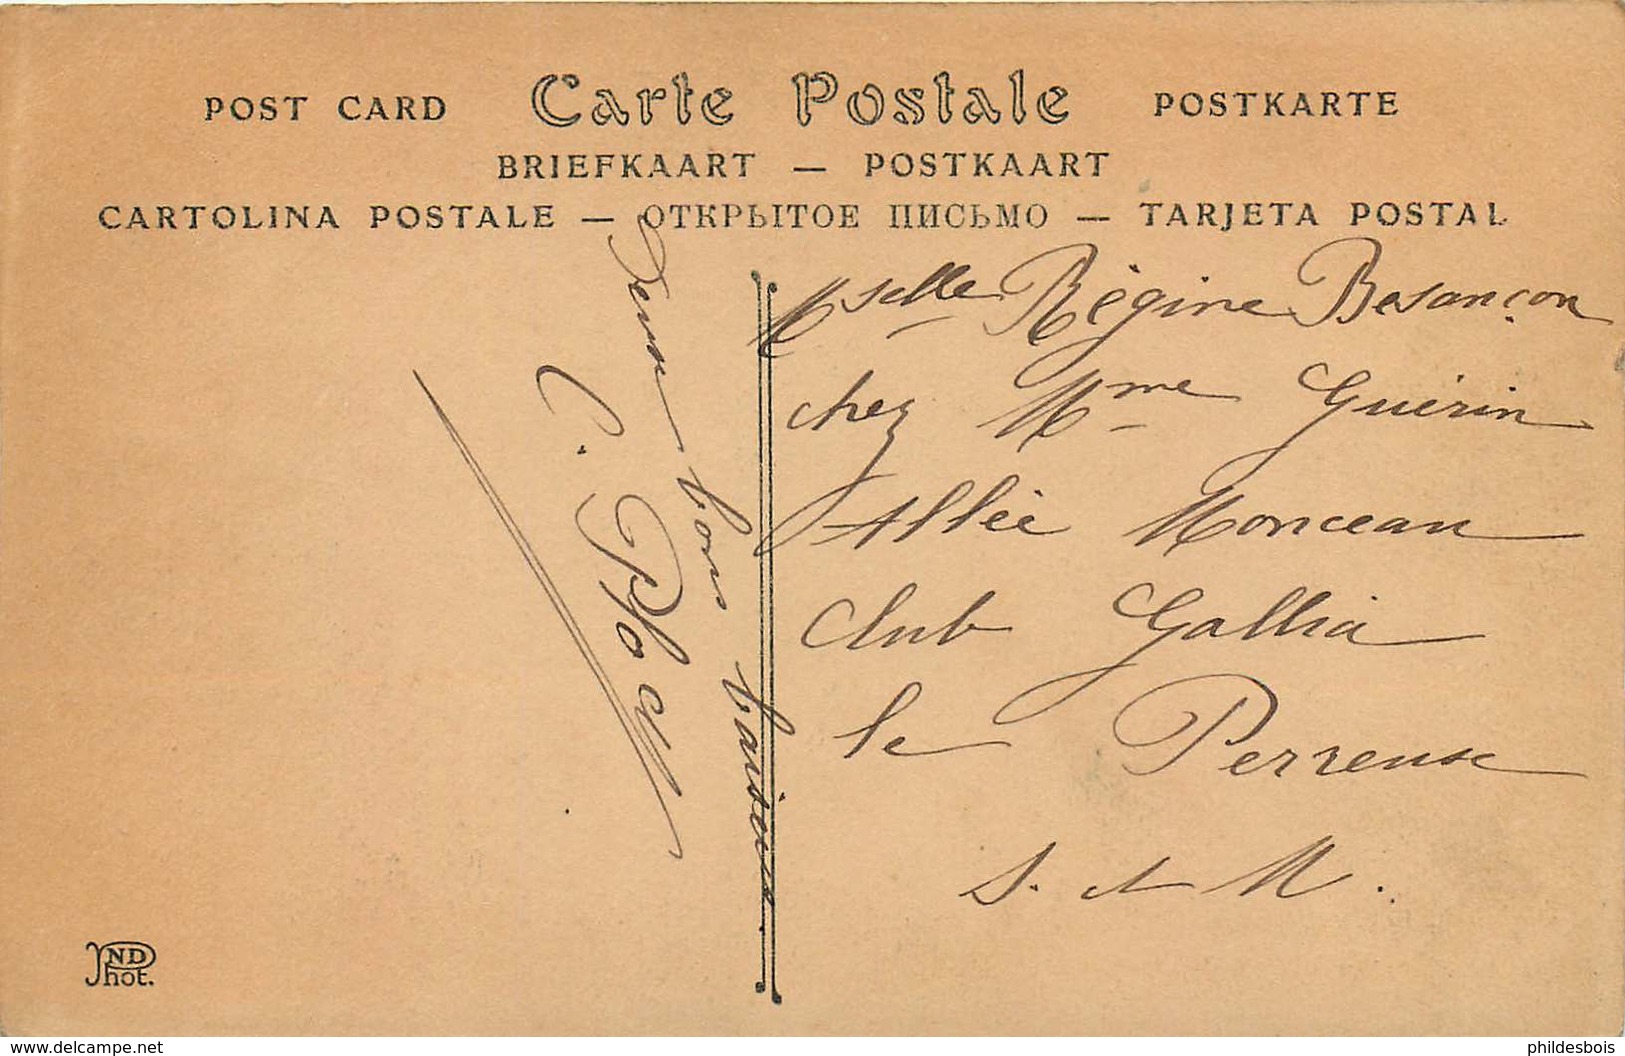 POST CARD Carte Postale POSTKARTE
BRIEFKAART — POSTKAART
CARTOLINA POSTALE — ОТКРЫТОЕ ПИСЬМО — TARJETA POSTAL
Mselle Régine Besançon
chez Mme Guérin
Allée Monceau
Club Gallia
le Perreux
S. et M.
bons baisers
C.
ND Phot.
www.delcampe.net
phildesbois